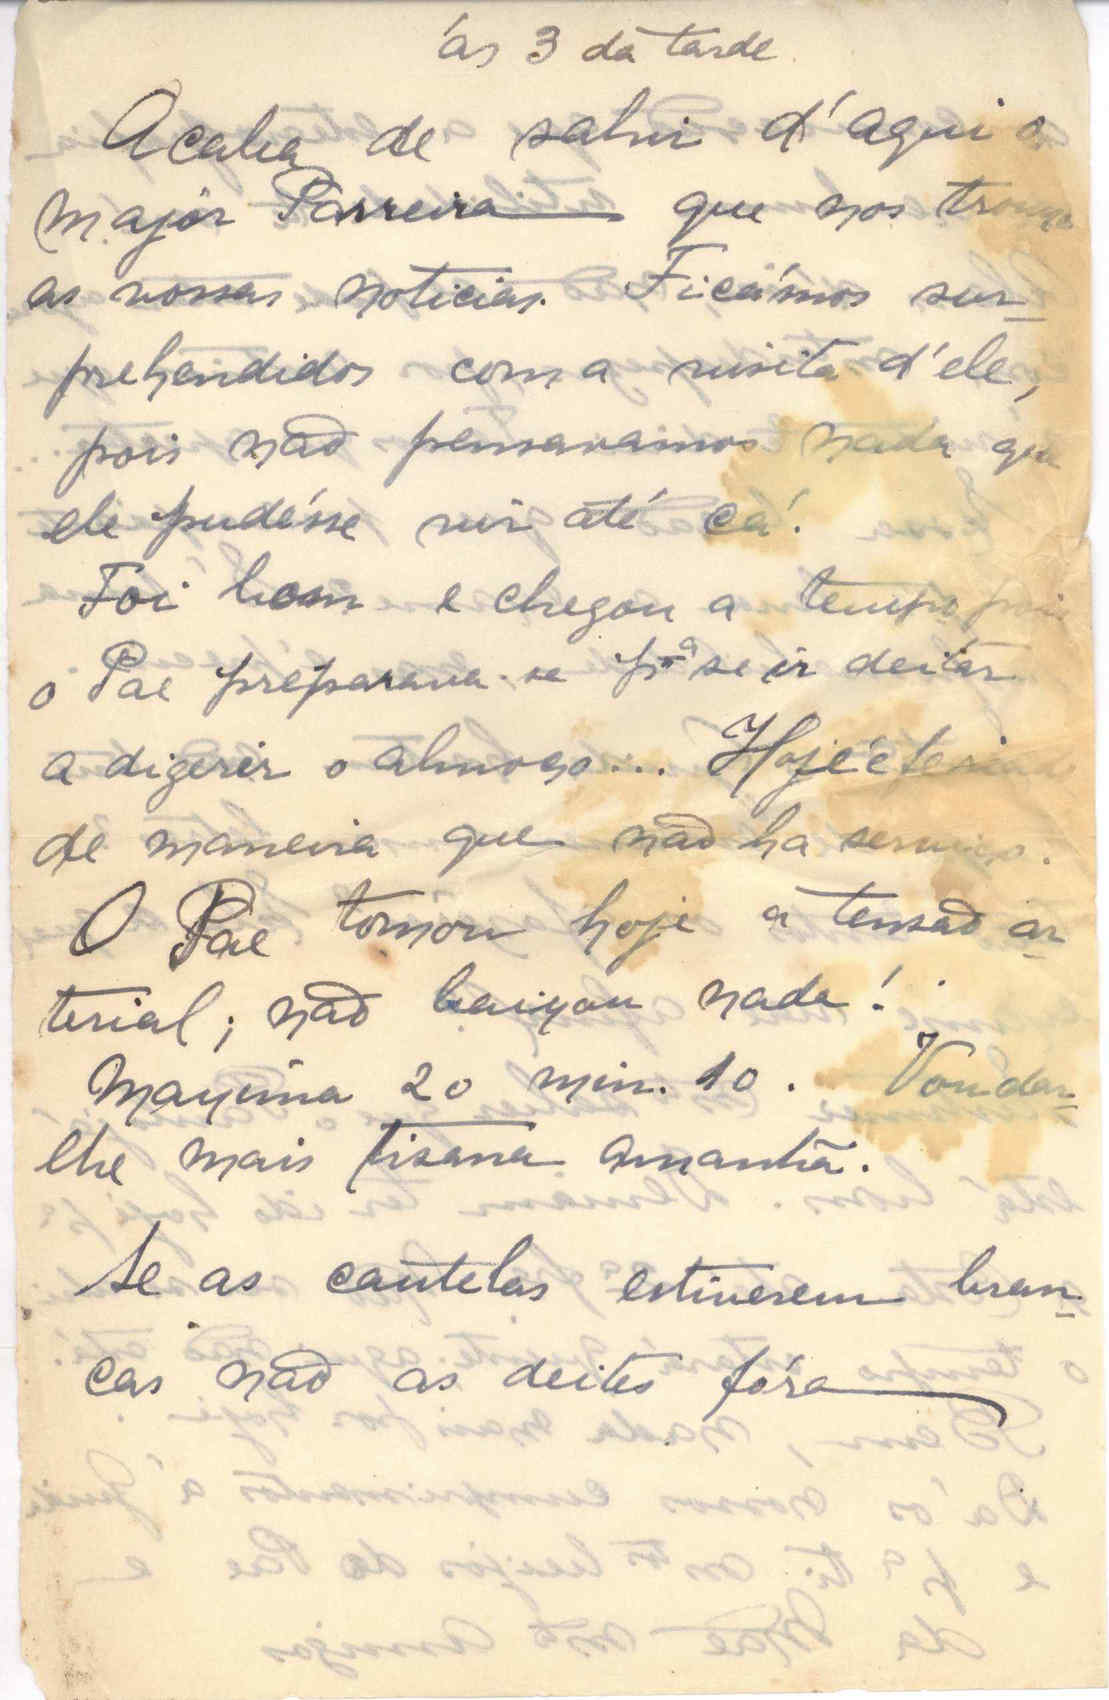 ás 3 da tarde
Acaba de sahir d'aqui o
major Parreira que nos trouxe
as vossas noticias. Ficámos sur-
prehendidos com a visita d'ele,
pois não pensavamos nada que
ele pudésse vir até cá!
Foi bom e chegou a tempo pois
o Pae preparava-se pª se ir deitar
a digerir o almoço... Hoje é feriado
de maneira que não ha serviço.
O Pae tomou hoje a tensão ar-
terial; não baixou nada!
Maxima 20 min. 10. Vou dar-
lhe mais tisana amanhã.
Se as cautelas estiverem bran-
cas não as deites fóra